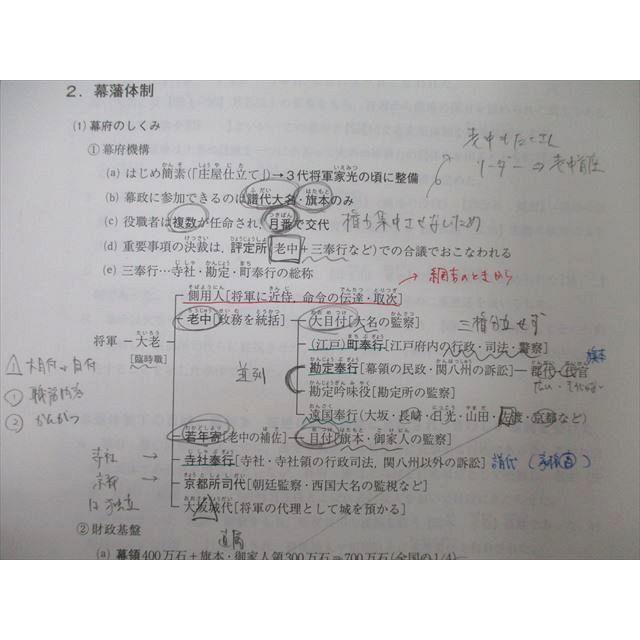 2. 幕藩体制
(1) 幕府のしくみ
① 幕府機構
老中もたくさん
リーダー⇒老中首座
(a) はじめ簡素(「庄屋仕立て」)→3代将軍家光の頃に整備
(b) 幕政に参加できるのは譜代大名・旗本のみ
(c) 役職者は複数が任命され, 月番で交代 権力集中させないため
(d) 重要事項の決裁は, 評定所(老中+三奉行など)での合議でおこなわれる
(e) 三奉行…寺社・勘定・町奉行の総称
→綱吉のときから
側用人[将軍に近侍, 命令の伝達・取次]
老中[政務を統括] 大目付[大名の監察]
三権分立せず
将軍 大老 (江戸)町奉行[江戸府内の行政・司法・警察]
[臨時職] 並列 勘定奉行[幕領の民政・関八州の訴訟] 郡代・代官
旗本
勘定吟味役[勘定所の監察]
① 職務内容
遠国奉行(大坂・長崎・日光・山田・佐渡・京都など)
② かんかつ
若年寄[老中の補佐] 目付[旗本・御家人の監察]
寺社 → 寺社奉行[寺社・寺社領の行政司法, 関八州以外の訴訟] 譜代
京都 → 京都所司代[朝廷監察・西国大名の監視など]
は独立 大坂城代[将軍の代理として城を預かる]
② 財政基盤
直属
(a) 幕領400万石+旗本・御家人領300万石⇒700万石(全国の1/4)